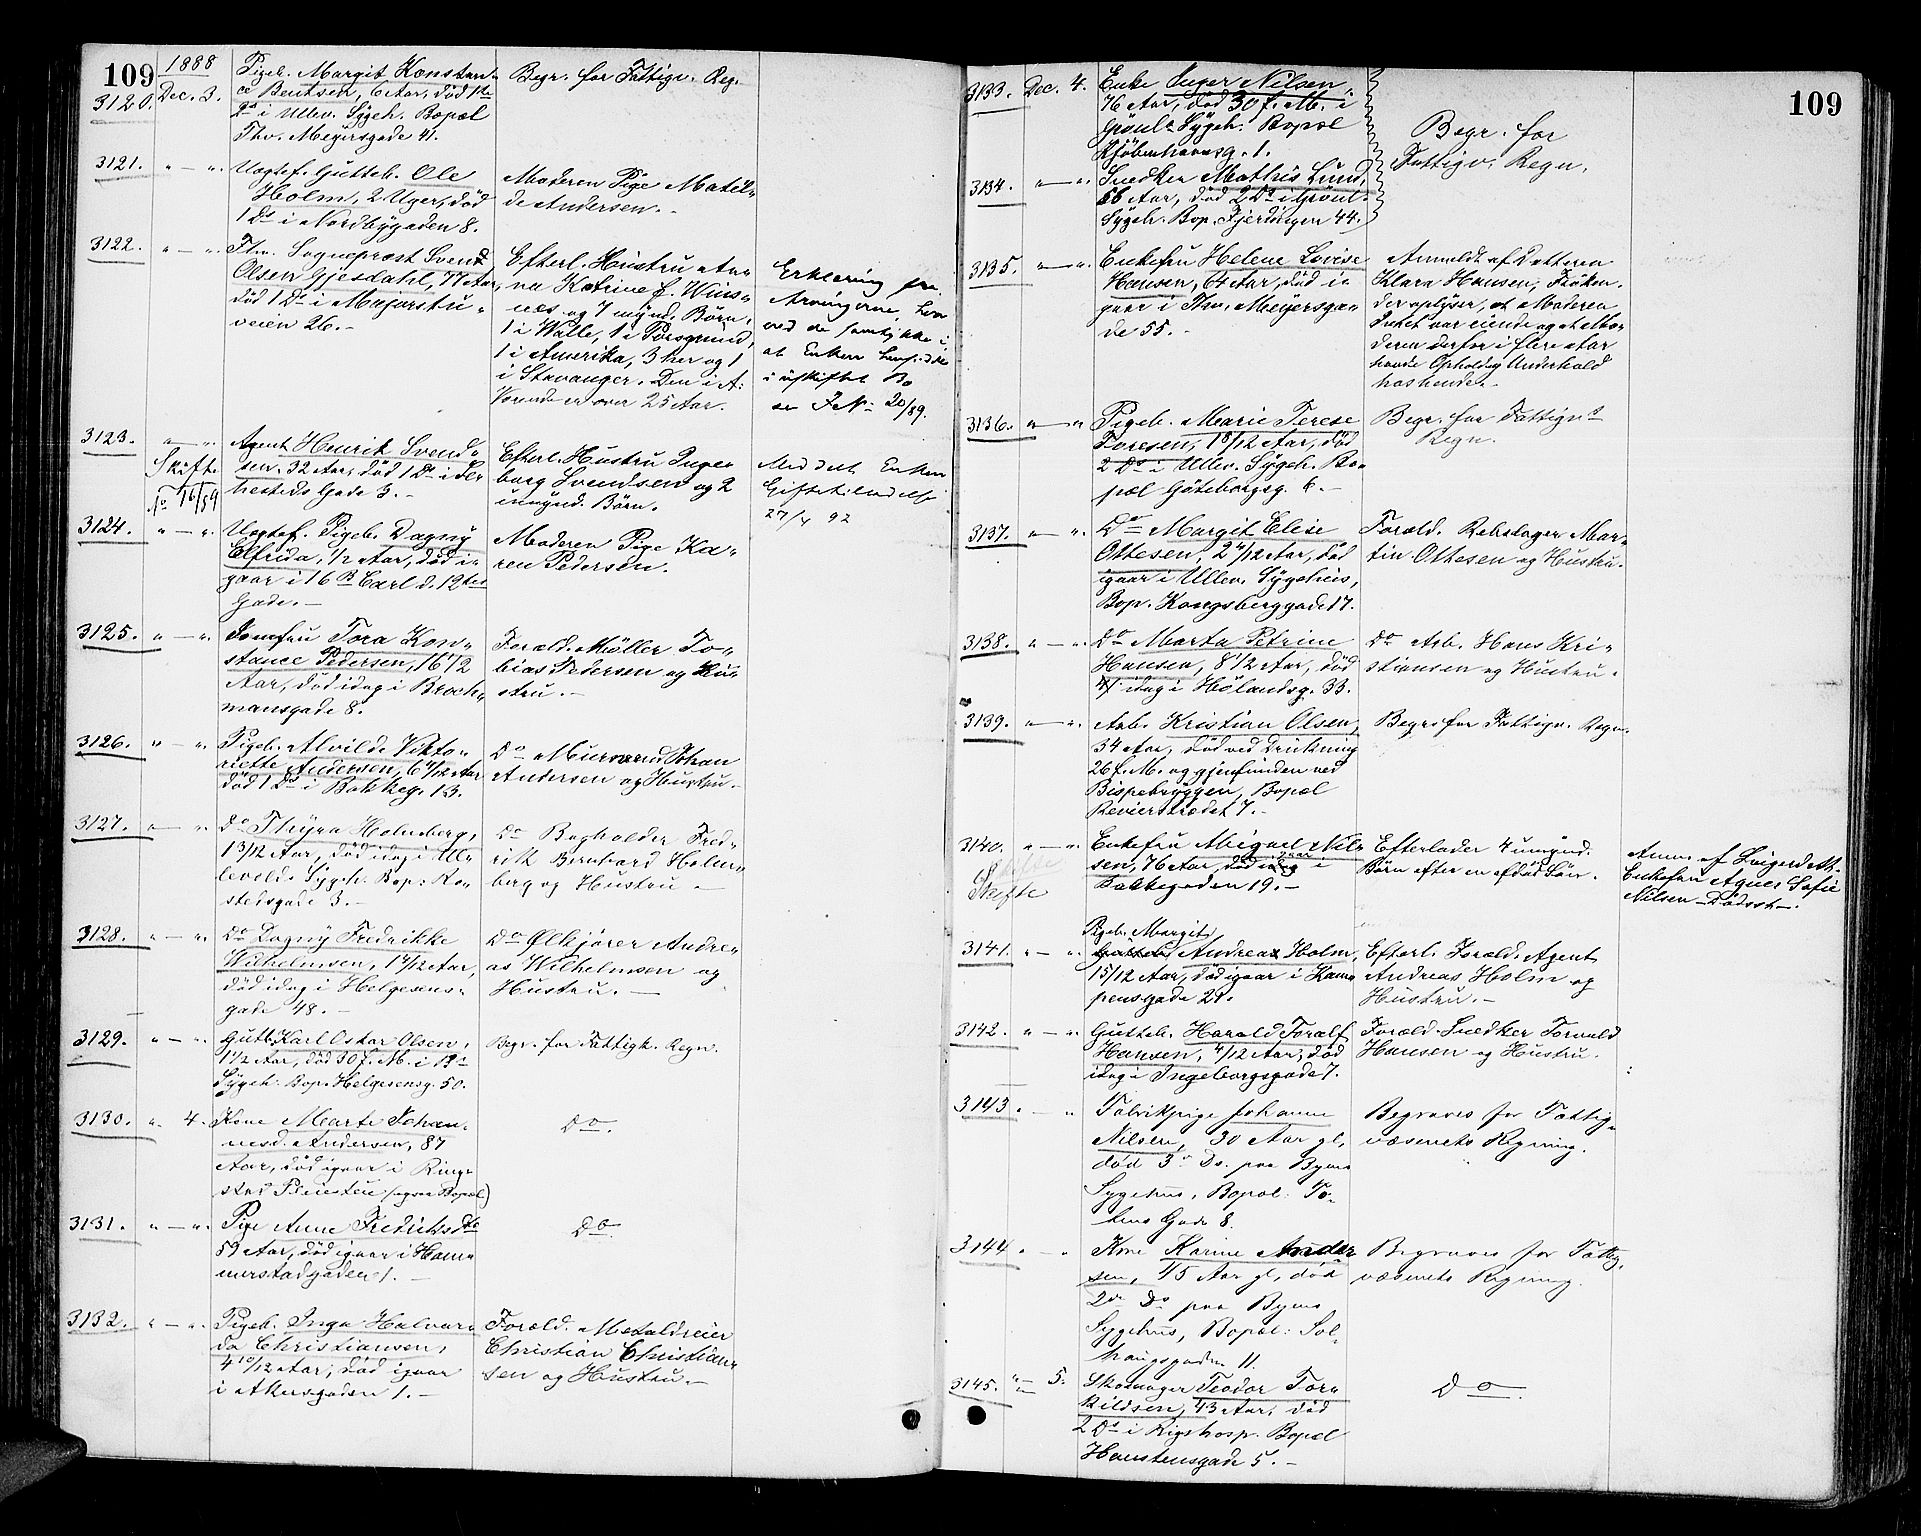 109
1888
3120. Dec. 3. Pigeb. Margit Konstan-
ce Bentsen, 6 Aar, død 1ste
Ds i Ullev. Sygeh. Bopæl
Thv. Meyersgade 41.
Begr. for Fattigv. Reg.
3121. " — " Uægtef. Gutteb. Ole
Holm, 2 Uger, død
1 Ds i Nordbygaden 8.
Moderen Pige Matil-
de Andersen. -
3122. " — " Fhv. Sognepræst Svend
Olsen Gjesdahl, 77 Aar,
død 1 Ds i Majorstu-
veien 26. -
Efterl. Hustru An-
na Katrine f. Wins-
nes og 7 mynd. Børn,
1 i Walle, 1 i Porsgrund,
1 i Amerika, 3 her og 1
i Stavanger. Den i A.
Værende er over 25 Aar.
Erklæring fra
Arvingerne, hvor
ved de samtykke i
at Enken hensidde
i uskiftet Bo
se J No 20/89.
3123. " — " Agent Henrik Svend-
sen, 32 Aar, død 1 Ds i Her-
hesteds Gade 3. -
Skifte
No 16/89
Efterl. Hustru Inge-
borg Svendsen og 2
umynd. Børn.
Meddelt Enken
Giftetilladelse
27/4 92
3124. " — " Uægtef. Pigeb. Dagny
Elfrida, 1/2 Aar, død i-
gaar i 16 B Carl d. 12tes
Gade. -
Moderen Pige Ka-
ren Pedersen.
3125. " — " Jomfru Tora Kon-
stance Pedersen, 16 1/2
Aar, død idag i Broch-
mansgade 8.
Foræld. Møller To-
bias Pedersen og Hu-
stru. -
3126. " — " Pigeb. Alvilde Vikto-
riette Andersen, 6 4/12 Aar
død 1 Ds i Bakkeg. 13.
Do Murmand Johan
Andersen og Hustru. -
3127. " — " Do Thyra Holmberg,
1 3/12 Aar, død idag i Ul-
levolds Sygeh. Bop. Ro-
stedsgade 3. -
Do Bogholder Fred-
rik Bernhard Holm-
berg og Hustru -
3128. " — " Do Dagny Fredrikke
Wilhelmsen, 1 4/12 Aar,
død idag i Helgesens-
gade 48. -
Do Ølkjører Andre-
as Wilhelmsen og
Hustru. -
3129. " — " Gutb. Karl Oskar Olsen,
1 1/2 Aar, død 30 f. M. i
Sygeh. Bop. Helgesensg. 50.
Begr. for Fattigk. Regn.
3130. " 4. Kone Marte Johan-
nesd. Andersen, 87
Aar, død igaar i Ring-
stad (ogsaa Bopæl)
Do.
3131. " — " Pige Anne Fredriksdtr
59 Aar, død igaar i Ham-
merstadgaden 1. -
Do.
3132. " — " Pigeb. Inga Halvar-
da Christiansen,
4 10/12 Aar, død igaar
i Akersgaden 1. -
Foræld. Metaldreier
Christian Christian-
sen og Hustru. -
109
3133. Dec. 4. Enke Inger Nilsen,
76 Aar, død 30 f. M. i
Grønl. Sygeh. Bopæl
Kjøbenhavnsg. 1.
3134. " — " Snedker Mathis Lund,
66 Aar, død 2 Ds i Grønl.
Sygeh. Bop. Fjerdingen 44.
Begr. for
Fattigv. Regn.
3135. " — " Enkefru Helene Lovise
Hansen, 64 Aar, død i-
gaar i Thv. Meyersga-
de 55. -
Anmeldt af Datteren
Klara Hansen, Frøken
der oplyser, at Moderen
Intet var eiende og at Mo-
deren derfor i flere Aar
havde Ophold og Underhold
hos hende. -
3136. " — " Pigeb. Marie Terese
Toresen, 1 8/12 Aar, død
2 Ds i Ullev. Sygeh. Bo-
pæl Göteborgsg. 6. -
Begr. for Fattigv.s
Regn.
3137. " — " Do Margit Elise
Ottesen, 2 4/12 Aar, død
igaar i Ullev. Sygehus,
Bop. Kongsberggade 17.
Foræld. Rebslager Mar-
tin Ottesen og Hustru.
3138. " — " Do Marta Petrine
Hansen, 8 1/2 Aar, død
idag i Hølandsg. 33.
Do Arb. Hans Kri-
stiansen og Hustru.
3139. " — " Arb. Kristian Olsen,
34 Aar, død ved Drukning
26 f. M. og gjenfunden ved
Bispebryggen, Bopæl
Revierstrædet 7. -
Begr. for Fattigv. Regn.
3140. " — " Enkefru Abigael Nil-
sen, 76 Aar, død igaar i
Bakkegaden 19. -
Skifte
Efterlader 4 umynd.
Børn efter en afdød Søn.
Anm. af Svigerdatt.
Enkefru Agnes Sofie
Nilsen - Dødsst. -
3141. " — " Pigeb. Margit
Andrea Holm,
1 5/12 Aar, død igaar i Kam-
pensgade 29.
Efterl. Foræld. Agent
Andreas Holm og
Hustru. -
3142. " — " Gutteb. Harald Toralf
Hansen, 4/12 Aar, død
idag i Ingeborgsgade 7.
Foræld. Snedker Torvald
Hansen og Hustru.
3143. — " Fabrikpige Johanne
Nilsen, 30 Aar gl,
død 3 Ds. paa Byens
Sygehus, Bopæl: To-
tens Gade 8.
Begraves for Fattig-
væsenets Regning.
3144. " " Kone Karine Ander
sen, 45 Aar gl, død
2 Ds paa Byens
Sygehus, Bopæl: Sol-
haugsgaden 11.
Begraves for Fattig-
væsenets Regning.
3145. " — 5. Skomager Teodor Tor-
kildsen, 43 Aar, død
2 Ds i Rigshosp. Bopæl
Haustensgade 5. -
Do.